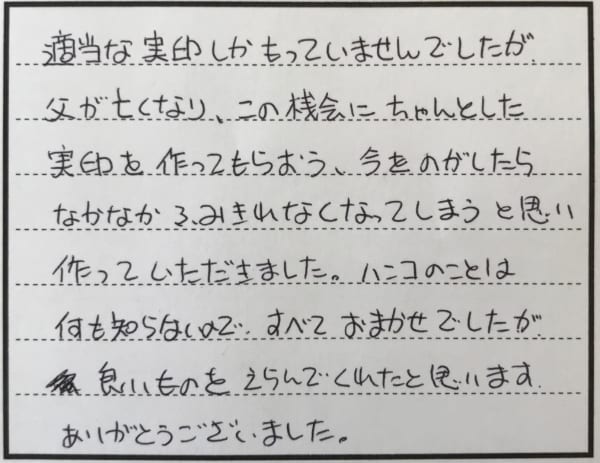 適当な実印しかもっていませんでしたが、
父が亡くなり、この機会にちゃんとした
実印を作ってもらおう、今をのがしたら
なかなかふみきれなくなってしまうと思い
作っていただきました。ハンコのことは
何も知らないので、すべておまかせでしたが
良いものをえらんでくれたと思います。
ありがとうございました。